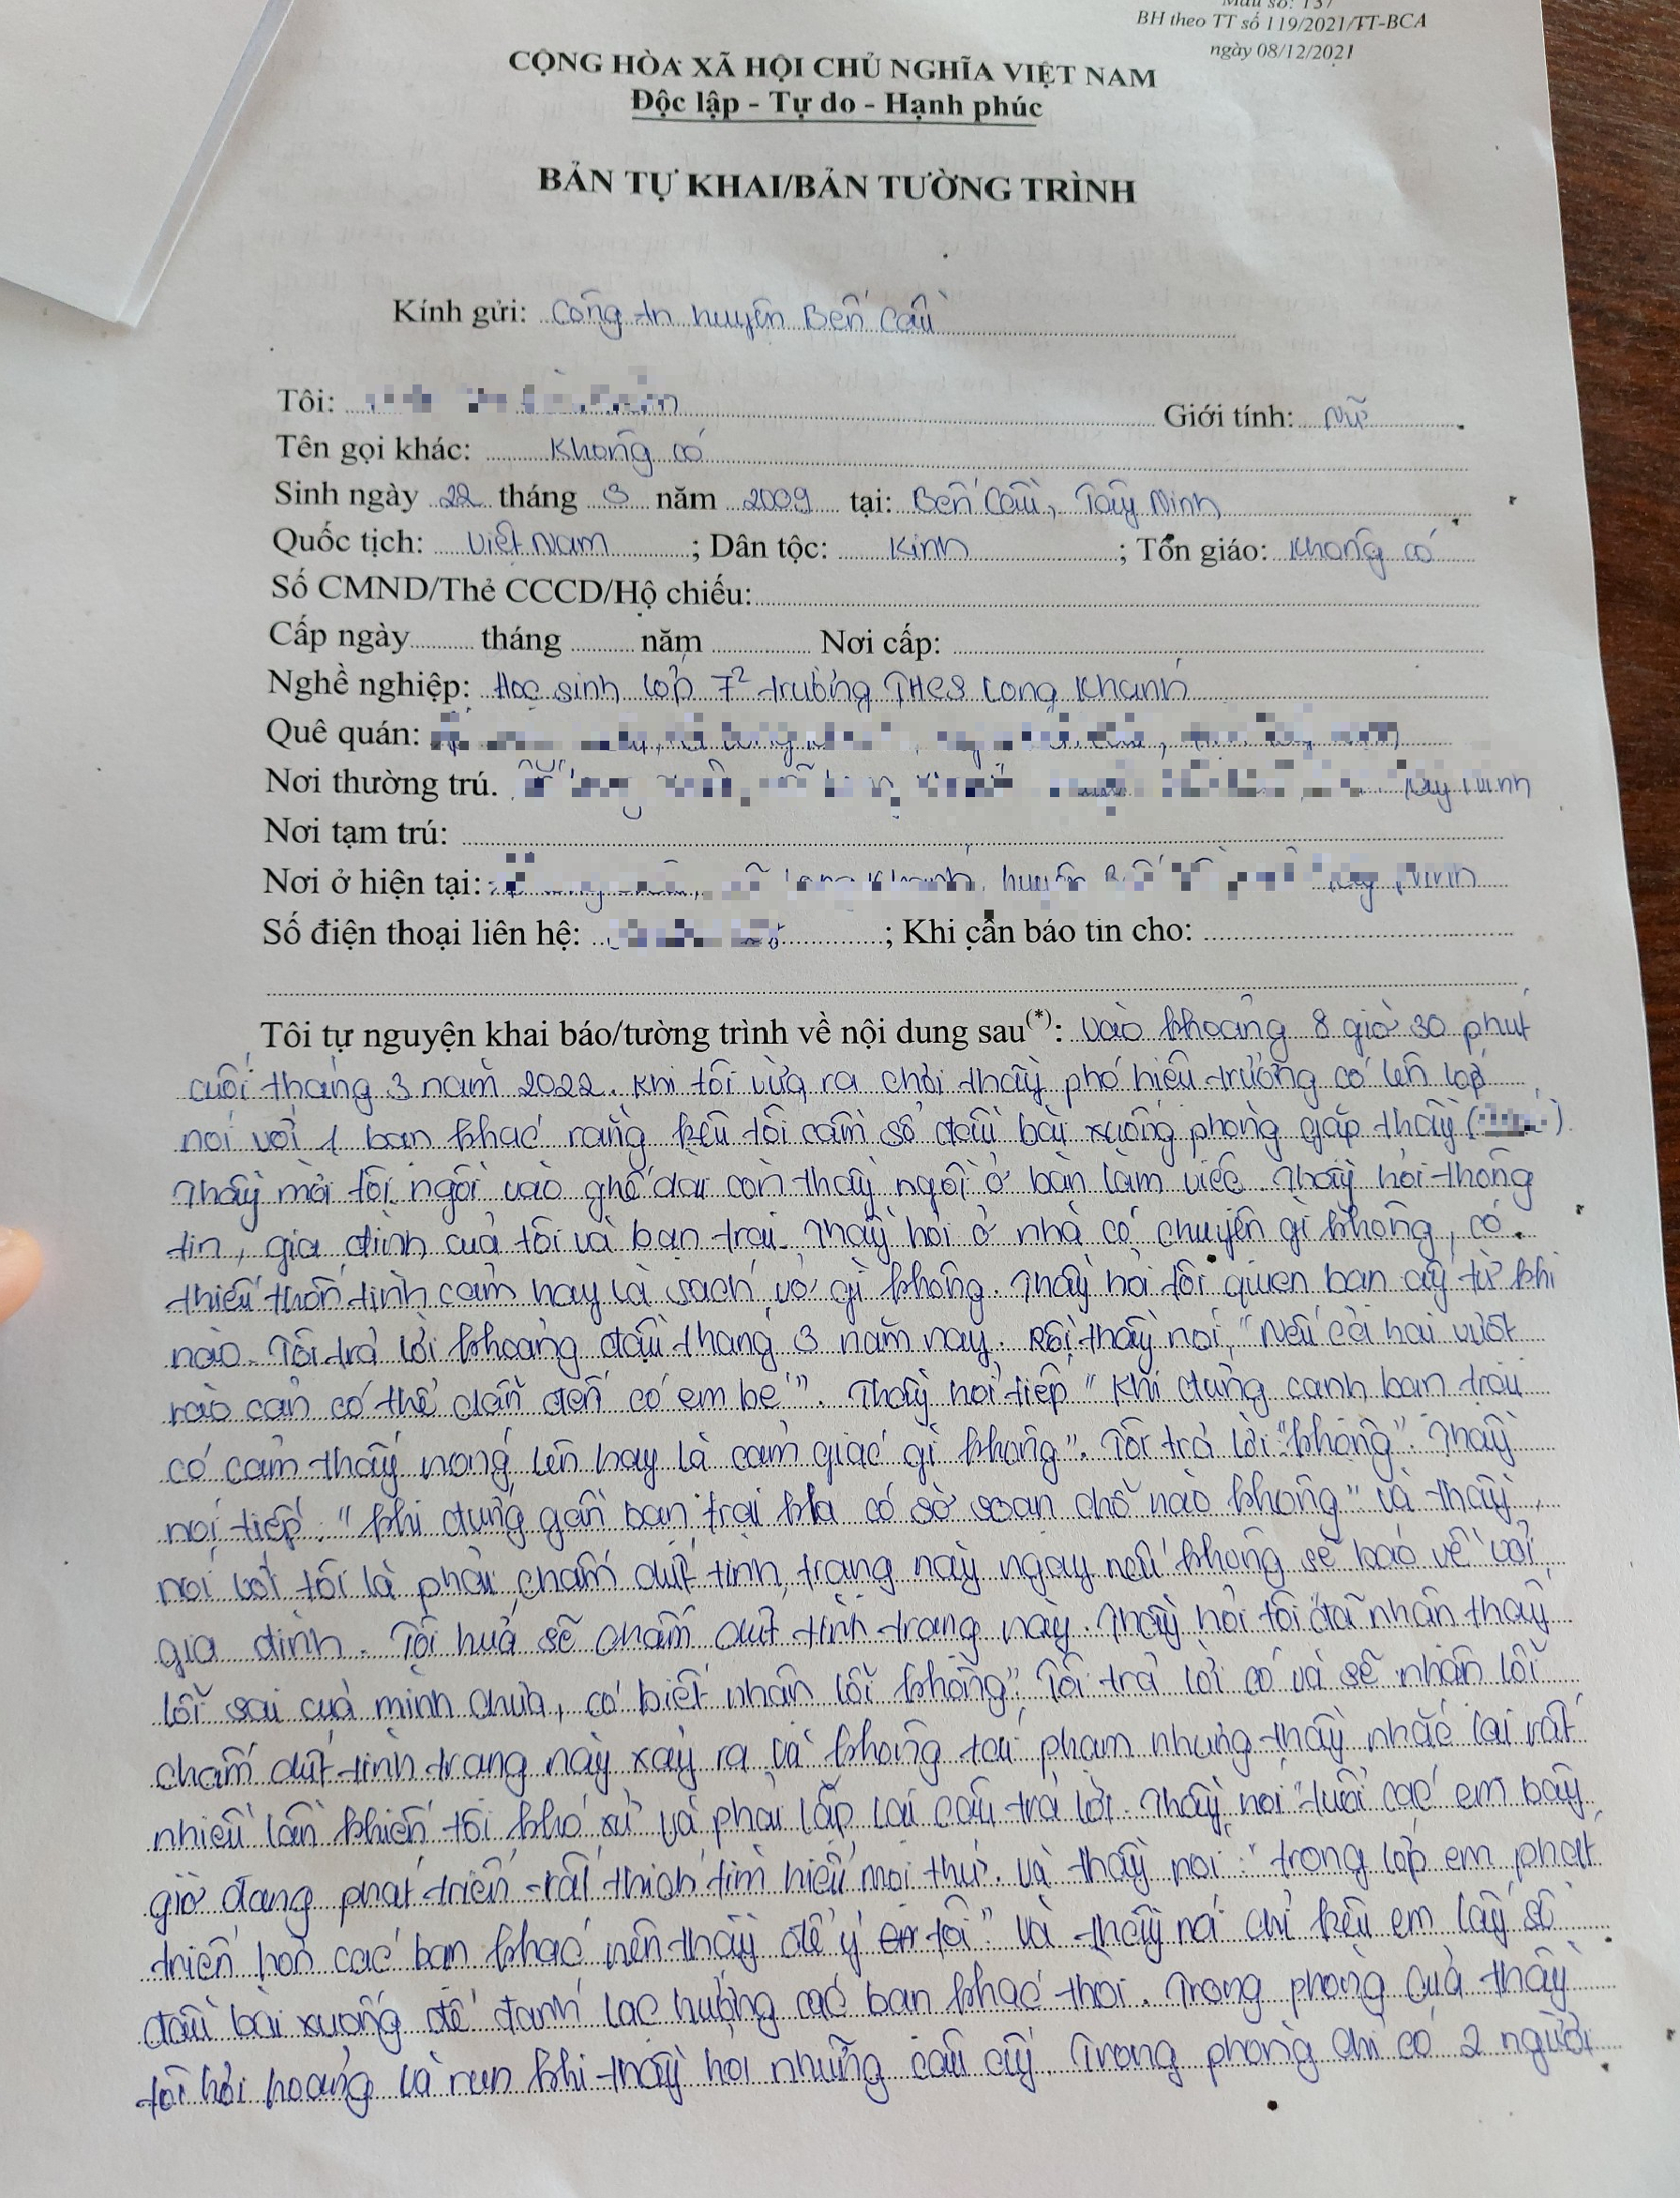 Mẫu số: 137
BH theo TT số 119/2021/TT-BCA
ngày 08/12/2021
CỘNG HÒA XÃ HỘI CHỦ NGHĨA VIỆT NAM
Độc lập - Tự do - Hạnh phúc
BẢN TỰ KHAI/BẢN TƯỜNG TRÌNH
Kính gửi: Công an huyện Bến Cầu
Tôi: Giới tính: Nữ
Tên gọi khác: Không có
Sinh ngày 22 tháng 3 năm 2009 tại: Bến Cầu, Tây Ninh
Quốc tịch: Việt Nam ; Dân tộc: Kinh ; Tôn giáo: Không có
Số CMND/Thẻ CCCD/Hộ chiếu:
Cấp ngày tháng năm Nơi cấp:
Nghề nghiệp: Học sinh lớp 7² trường THCS Long Khánh
Quê quán:
Nơi thường trú. Tây Ninh
Nơi tạm trú:
Nơi ở hiện tại: Long Khánh, huyện Tây Ninh
Số điện thoại liên hệ: ; Khi cần báo tin cho:
Tôi tự nguyện khai báo/tường trình về nội dung sau(*): vào khoảng 8 giờ 30 phút
cuối tháng 3 năm 2022. Khi tôi vừa ra chơi thầy phó hiệu trưởng có lên lớp
nói với 1 bạn khác rằng kêu tôi cầm sổ đầu bài xuống phòng gặp thầy ( ).
Thầy mời tôi ngồi vào ghế dài còn thầy ngồi ở bàn làm việc. Thầy hỏi thông
tin, gia đình của tôi và bạn trai. Thầy hỏi ở nhà có chuyện gì không, có
thiếu thốn tình cảm hay là sách vở gì không. Thầy hỏi tôi quen bạn ấy từ khi
nào. Tôi trả lời khoảng đầu tháng 3 năm nay. Rồi thầy nói, "Nếu cả hai vượt
rào cản có thể dẫn đến có em bé". Thầy nói tiếp "Khi đứng cạnh bạn trai
có cảm thấy nóng lên hay là cảm giác gì không". Tôi trả lời "không". Thầy
nói tiếp: "khi đứng gần bạn trai kia có sờ soạn chỗ nào không" và thầy
nói với tôi là phải chấm dứt tình trạng này ngay nếu không sẽ báo về với
gia đình. Tôi hứa sẽ chấm dứt tình trạng này. Thầy hỏi tôi "đã nhận thấy
lỗi sai của mình chưa, có biết nhận lỗi không". Tôi trả lời có và sẽ nhận lỗi
chấm dứt tình trạng này xảy ra và không tái phạm nhưng thầy nhắc lại rất
nhiều lần khiến tôi khó xử và phải lặp lại câu trả lời. Thầy nói "tuổi các em bây
giờ đang phát triển rất thích tìm hiểu mọi thứ. Và thầy nói: "trong lớp em phát
triển hơn các bạn khác nên thầy để ý tôi" và thầy nói chỉ kêu em lấy sổ
đầu bài xuống để đánh lạc hướng các bạn khác thôi. Trong phòng của thầy
tôi hơi hoảng và run khi thầy hỏi những câu ấy. Trong phòng chỉ có 2 người